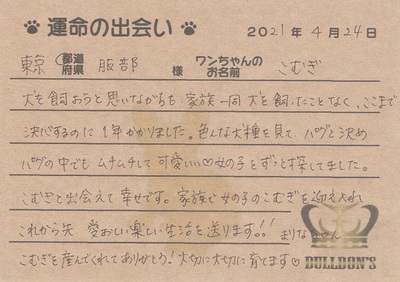 運命の出会い 2021年4月24日
東京 都道府県 服部 様 ワンちゃんのお名前 こむぎ
犬を飼おうと思いながらも 家族一同 犬を飼ったことなく、ここまで
決心するのに 1年かかりました。色んな犬種を見て パグと決め
パグの中でも ムチムチして可愛いい♡女の子をずっと探してました。
こむぎと出会えて幸せです。家族で女の子のこむぎを迎え入れ
これから先 愛おしい楽しい生活を送ります!!
こむぎを産んでくれてありがとう!大切に大切に育てます♡
BULLDON'S